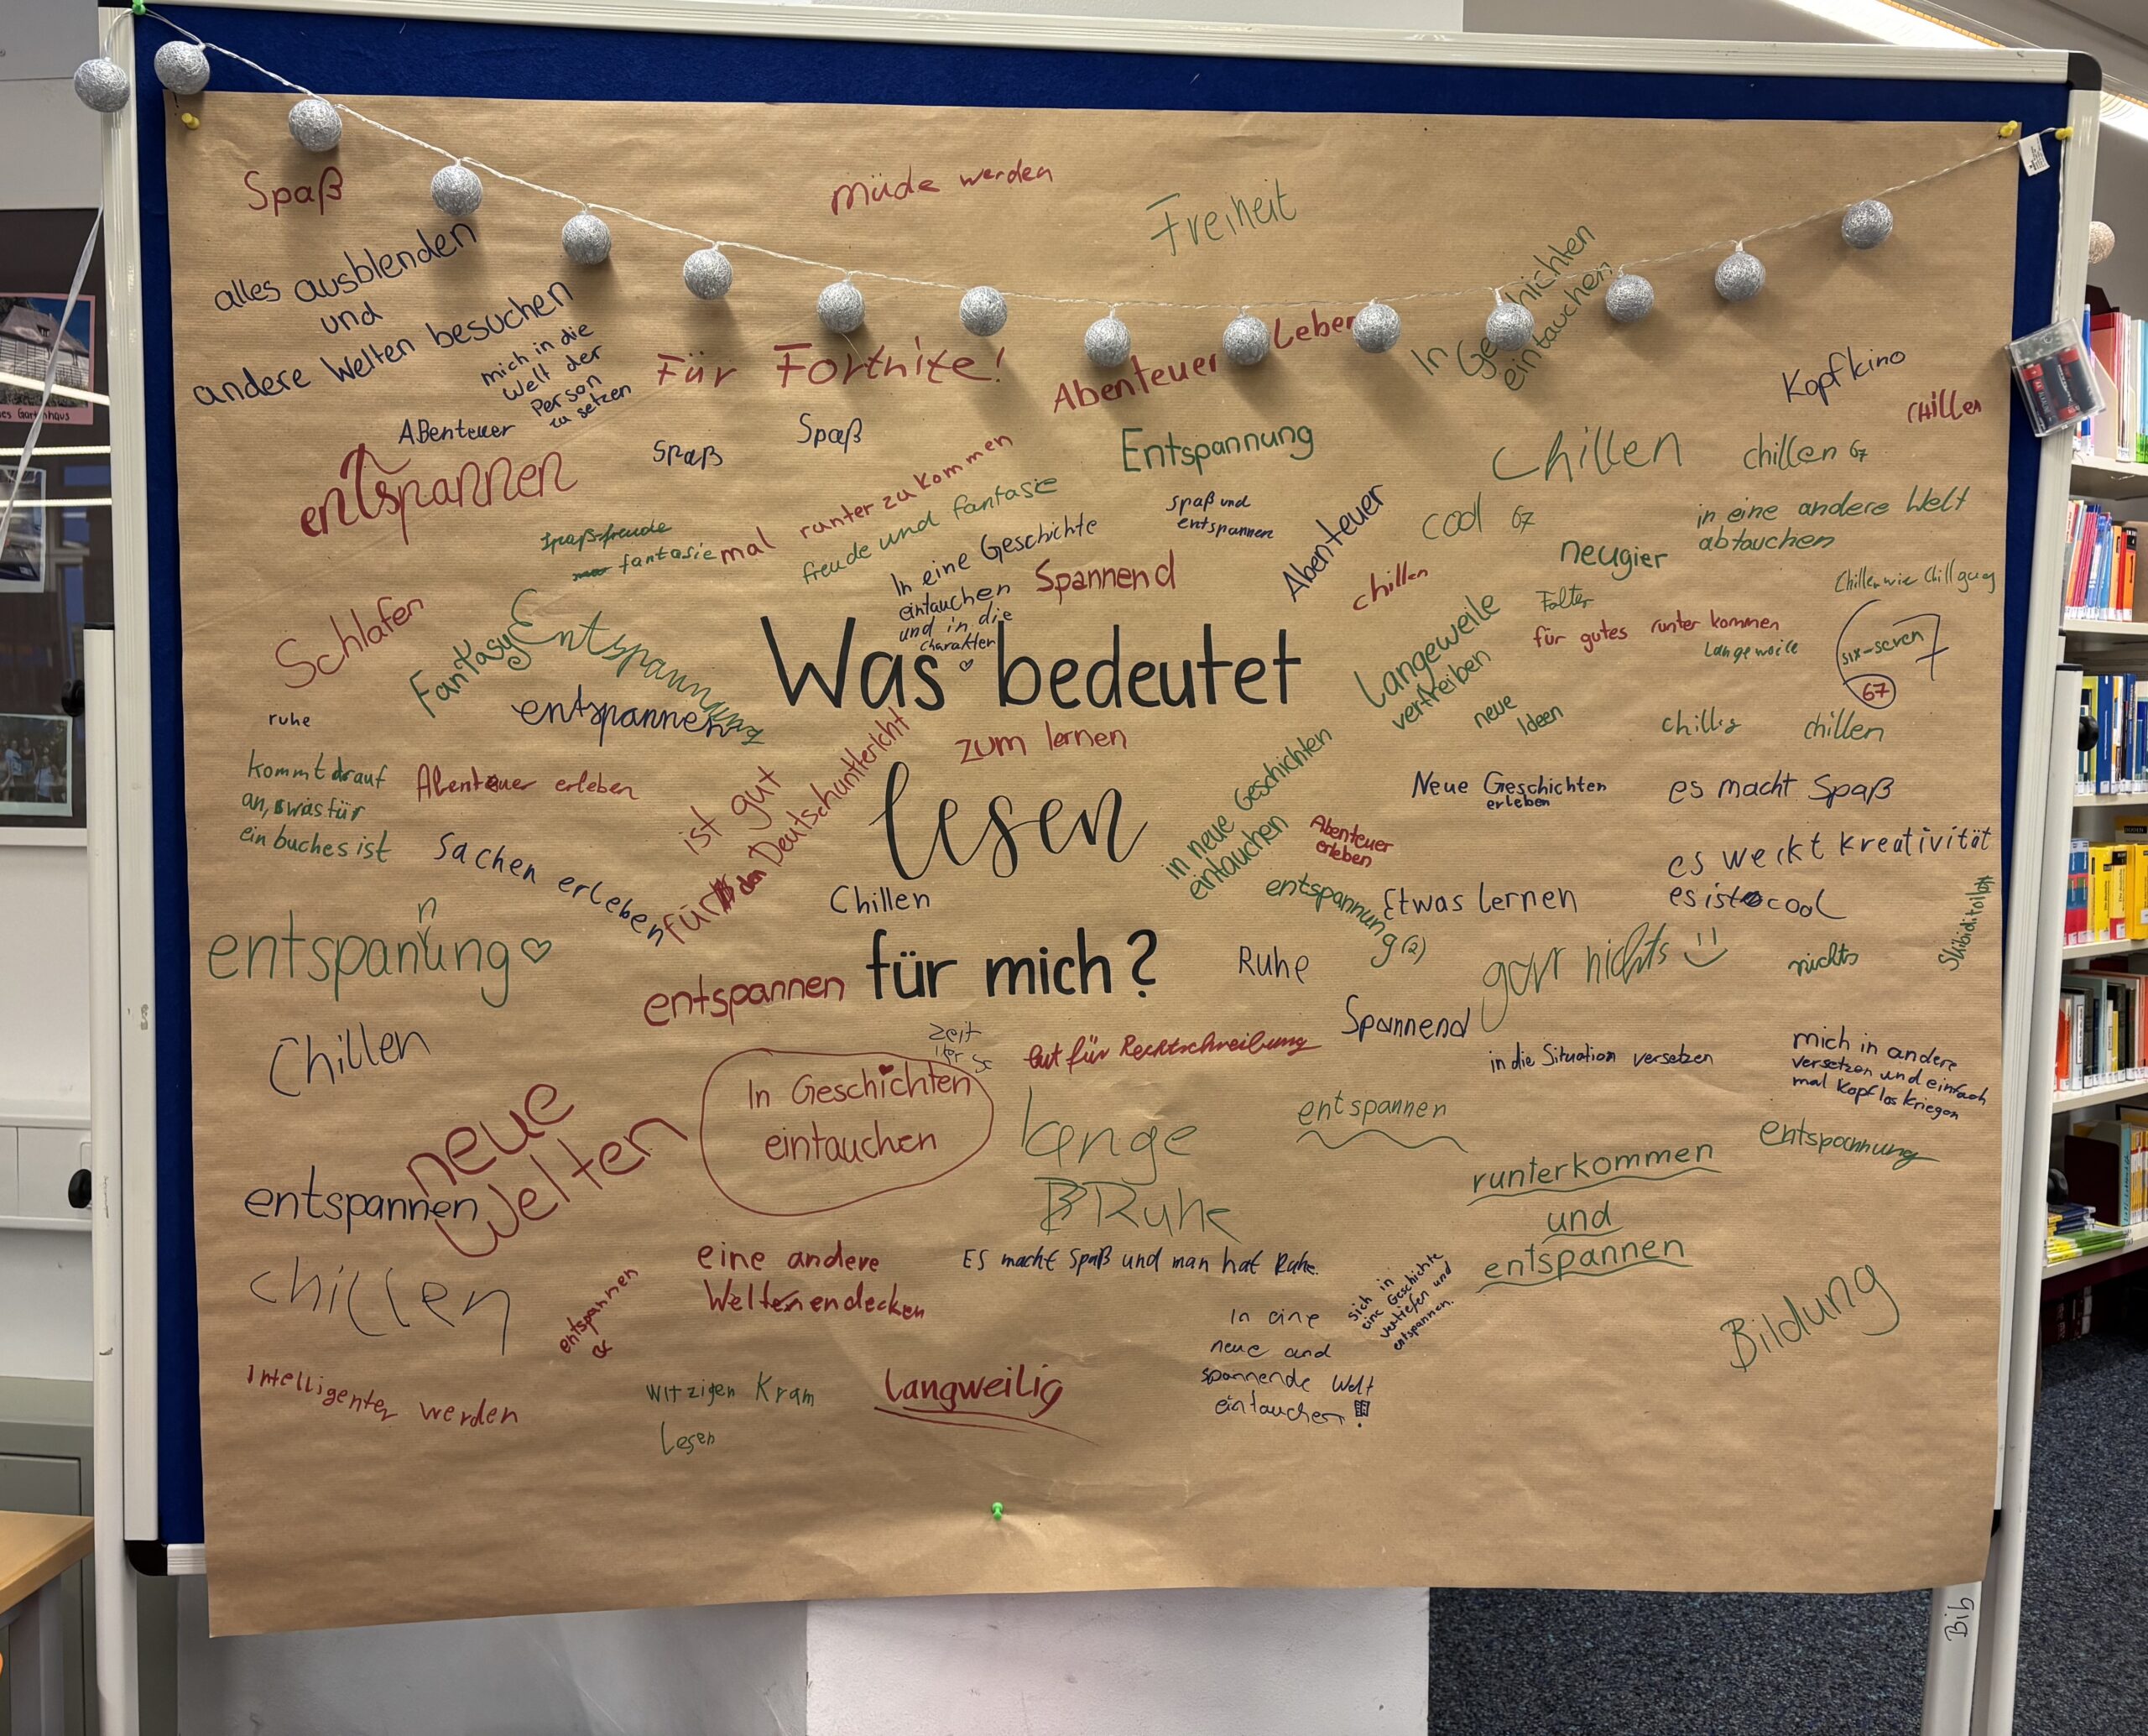 Spaß
müde werden
Freiheit
alles ausblenden
und
andere Welten besuchen
mich in die
Welt der
Person
zu setzen
ABenteuer
Für Fortnite!
Abenteuer
Leben
In Geschichten
eintauchen
Kopfkino
CHillen
entspannen
Spaß
Spaß
Entspannung
Chillen
chillen 67
mal runter zu kommen
freude und fantasie
Spaß freude
fantasie
In eine Geschichte
eintauchen
und in die
charakter
Spannend
spaß und
entspannen
Abenteuer
chillen
cool 67
in eine andere Welt
abtauchen
neugier
Falter
für gutes runter kommen
Langeweile
six-seven
67
Schlafen
Fantasy
Entspannung
entspannen
ruhe
Was bedeutet
lesen
für mich?
zum lernen
Langeweile
vertreiben
neue
Ideen
chillig
chillen
kommt drauf
an, was für
ein buch es ist
Abenteuer erleben
Sachen erleben
ist gut
für den Deutschuntericht
Chillen
in neue Geschichten
eintauchen
Abenteuer
erleben
Neue Geschichten
erleben
es macht Spaß
es weckt kreativität
es ist cool
entspannung (2)
Etwas lernen
entspanung
n
entspannen
Ruhe
gar nichts
nichts
Chillen
zeit
Gut für Rechtschreibung
Spannend
in die Situation versetzen
mich in andere
versetzen und einfach
mal Kopf los kriegen
neue
Welten
In Geschichten
eintauchen
lange
Ruhe
entspannen
runterkommen
und
entspannen
entspannung
entspannen
chillen
entspannen
eine andere
Welten endecken
ES macht Spaß und man hat Ruhe.
In eine
neue und
spannende Welt
eintauchen!
sich in
eine Geschichte
vertiefen und
entspannen.
Bildung
Intelligenter werden
witzigen Kram
Lesen
Langweilig
Bib